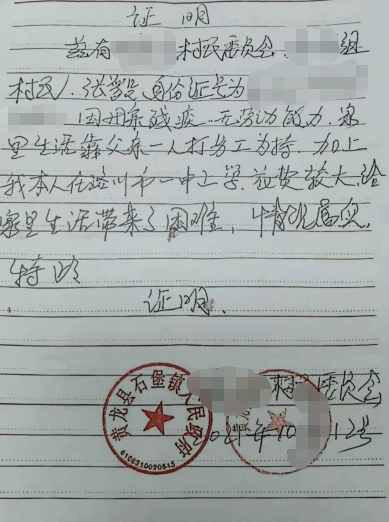 证明
兹有 村民委员会, 组
村民人, 张 身份证号为
因 残疾 无劳动能力, 家
里生活靠父亲一人打劳工为持, 加上
我本人在 川市一中上学, 花费较大, 给
家里生活带来了困难, 情况属实,
特此
证明.
村 委员会
2021年10 12号
黄龙县石堡镇人民政府
6106310020615